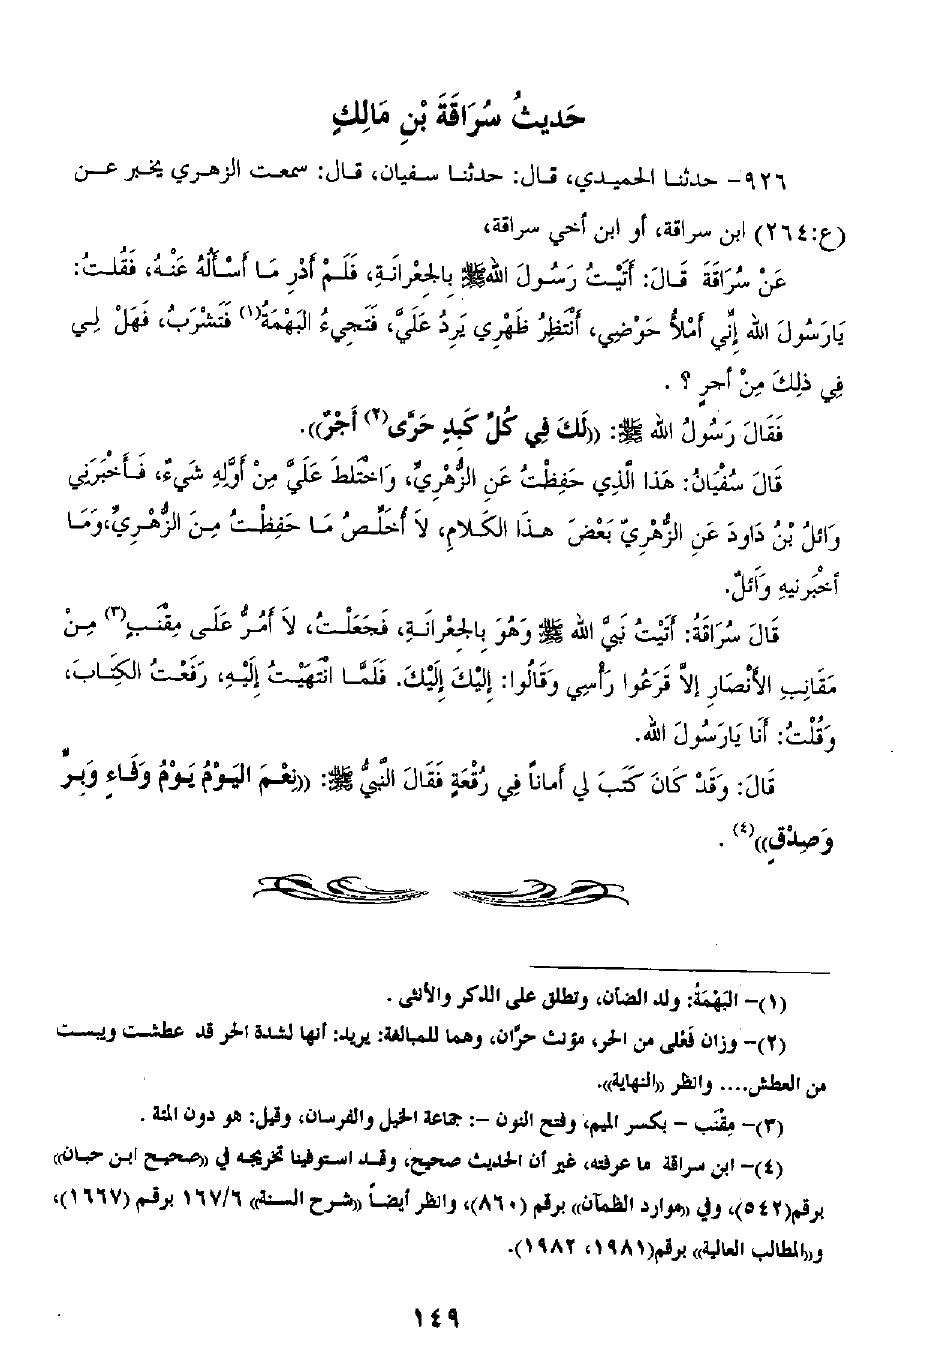 حَديثُ سُرَاقَةَ بْنِ مَالِكٍ
٩٢٦- حدثنا الحميدي، قال: حدثنا سفيان، قال: سمعت الزهري يخبر عن
(ع:٢٦٤) ابن سراقة، أو ابن أخي سراقة،
عَنْ سُرَاقَةَ قَالَ: أَتَيْتُ رَسُولَ اللهِ ﷺ بِالجِعْرانَةِ، فَلَمْ أَدْرِ مَا أَسْأَلُهُ عَنْهُ، فَقُلتُ:
يَارَسُولَ اللهِ إِنِّي أَمْلأُ حَوْضِي، أَنْتَظِرُ ظَهْرِي يَرِدُ عَلَيَّ، فَتَجِيءُ البَهْمَةُ(١) فَتَشْرَبُ، فَهَلْ لِي
فِي ذلِكَ مِنْ أَجرٍ ؟ .
فَقَالَ رَسُولُ اللهِ ﷺ: ((لَكَ فِي كُلِّ كَبِدٍ حَرَّى(٢) أَجْرٌ)).
قَالَ سُفْيَانُ: هَذَا الَّذِي حَفِظْتُ عَنِ الزُّهْرِيِّ، وَاخْتَلَطَ عَلَيَّ مِنْ أَوَّلِهِ شَيءٌ، فَأَخْبَرَنِي
وَائلُ بْنُ دَاودَ عَنِ الزُّهْرِيِّ بَعْضَ هذَا الكَلامِ، لاَ أُخَلِّصُ مَا حَفِظْتُ مِنَ الزُّهْرِيِّ،وَمَا
أخْبَرنيهِ وَائلٌ.
قَالَ سُرَاقَةُ: أَتَيْتُ نَبِيَّ اللهِ ﷺ وَهُوَ بِالجِعْرانَةِ، فَجَعَلْتُ، لاَ أَمُرُّ عَلَى مِقْنَبٍ(٣) مِنْ
مَقَانِبِ الأَنْصَارِ إلاَّ قَرَعُوا رَأْسِي وَقَالُوا: إِلَيْكَ إِلَيْكَ. فَلَمَّا انْتَهَيْتُ إِلَيْهِ، رَفَعْتُ الكِتَابَ،
وَقُلْتُ: أَنَا يَارَسُولَ اللهِ.
قَالَ: وَقَدْ كَانَ كَتَبَ لِي أَمَاناً فِي رُقْعَةٍ فَقَالَ النَّبِيُّ ﷺ: ((نِعْمَ اليَوْمُ يَوْمُ وَفَاءٍ وَبِرٍّ
وَصِدْقٍ))(٤) .
(١)- البَهْمَةُ: ولد الضأن، وتطلق على الذكر والأنثى .
(٢)- وزان فَعْلى من الحر، مؤنث حرَّان، وهما للمبالغة: يريد: أنها لشدة الحر قد عطشت ويبست
من العطش.... وانظر ((النهاية)).
(٣)- مِقْنَب - بكسر الميم، وفتح النون -: جماعة الخيل والفرسان، وقيل: هو دون المئة .
(٤)- ابن سراقة ما عرفته، غير أن الحديث صحيح، وقد استوفينا تخريجه في ((صحيح ابن حبان))
برقم(٥٤٢)، وفي ((موارد الظمآن)) برقم (٨٦٠)، وانظر أيضاً ((شرح السنة)) ١٦٧/٦ برقم (١٦٦٧)،
و((المطالب العالية)) برقم(١٩٨١، ١٩٨٢).
١٤٩